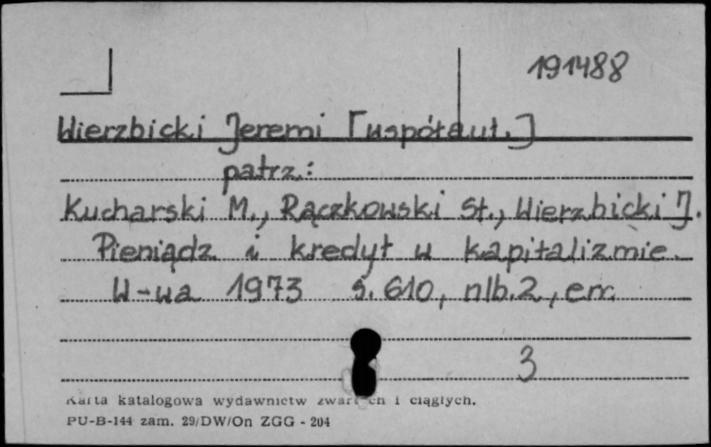 191488
Wierzbicki Jeremi [współaut.]
patrz:
Kucharski M., Rączkowski St., Wierzbicki J.
Pieniądz i kredyt w kapitalizmie.
W-wa 1973 s. 610, nlb. 2, err.
3
Karta katalogowa wydawnictw zwartych i ciągłych.
PU-B-144 zam. 29/DW/On ZGG - 204